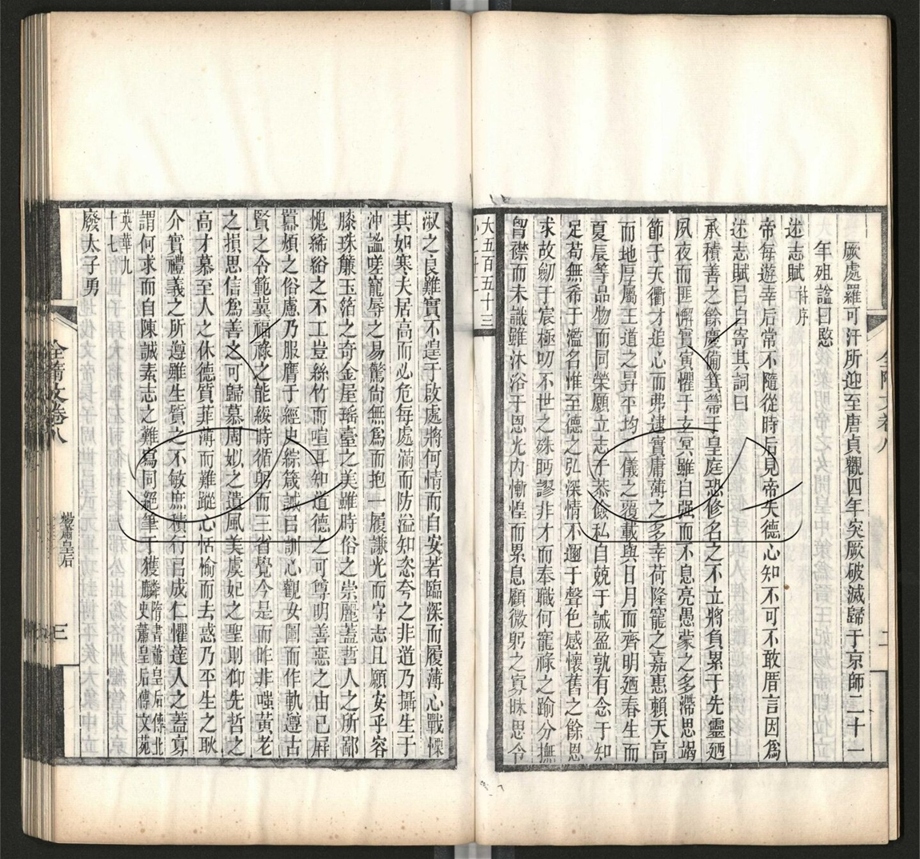 厥處羅可汗所迎至唐貞觀四年突厥破滅歸于京師二十一
年殂諡曰愍
述志賦并序
帝每遊幸后常不隨從時后見帝失德心知不可不敢厝言因爲
述志賦曰自寄其詞曰
承積善之餘慶備箕帚于皇庭恐修名之不立將負累于先靈廼
夙夜而匪懈實寅懼于玄冥雖自强而不息亮愚蒙之多滯思竭
節于天衢才追心而弗逮實庸薄之多幸荷隆寵之嘉惠賴天高
而地厚屬王道之昇平均二儀之覆載與日月而齊明廼春生而
夏長等品物而同榮願立志于恭儉私自兢于誡盈孰有念于知
足苟無希于濫名惟至德之弘深情不邇于聲色感懷舊之餘恩
求故劒于宸極叨不世之殊眄謬非才而奉職何寵祿之踰分撫
胷襟而未識雖沐浴于恩光内慚惶而累息顧微躬之寡昧思令
大五百五十三
全隋文卷八
二
淑之良難實不遑于啟處將何情而自安若臨深而履薄心戰慄
其如寒夫居高而必危每處滿而防溢知恣夸之非道乃攝生于
沖謐嗟寵辱之易驚尚無爲而抱一履謙光而守志且願安乎容
膝珠簾玉箔之奇金屋瑶臺之美雖時俗之崇麗蓋哲人之所鄙
愧絺綌之不工豈絲竹而喧耳知道德之可尊明善惡之由己屛
囂煩之俗慮乃服膺于經史綜箴誡以訓心觀女圖而作軌遵古
賢之令範冀福祿之能綏時循躬而三省覺今是而昨非嗤黃老
之損思信爲善之可歸慕周姒之遺風美虞妃之聖則仰先哲之
高才慕至人之休德質菲薄而難蹤心恬愉而去惑乃平生之耿
介實禮義之所遵雖生質之不敏庶積行以成仁懼達人之蓋寡
謂何求而自陳誠素志之難寫同絕筆于獲麟隋書蕭皇后傳北史蕭皇后傳文苑
英華九十七
廢太子勇
全隋文卷八
煬蕭皇后
三